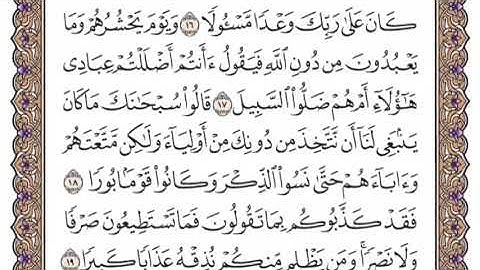 كَانَ عَلَىٰ رَبِّكَ وَعْدًا مَّسْـُٔولًا ١٦ وَيَوْمَ يَحْشُرُهُمْ وَمَا
يَعْبُدُونَ مِن دُونِ ٱللَّهِ فَيَقُولُ ءَأَنتُمْ أَضْلَلْتُمْ عِبَادِى
هَٰٓؤُلَآءِ أَمْ هُمْ ضَلُّوا۟ ٱلسَّبِيلَ ١٧ قَالُوا۟ سُبْحَٰنَكَ مَا كَانَ
يَنۢبَغِى لَنَآ أَن نَّتَّخِذَ مِن دُونِكَ مِنْ أَوْلِيَآءَ وَلَٰكِن مَّتَّعْتَهُمْ
وَءَابَآءَهُمْ حَتَّىٰ نَسُوا۟ ٱلذِّكْرَ وَكَانُوا۟ قَوْمًۢا بُورًا ١٨
فَقَدْ كَذَّبُوكُم بِمَا تَقُولُونَ فَمَا تَسْتَطِيعُونَ صَرْفًا
وَلَا نَصْرًا ۚ وَمَن يَظْلِم مِّنكُمْ نُذِقْهُ عَذَابًا كَبِيرًا ١٩